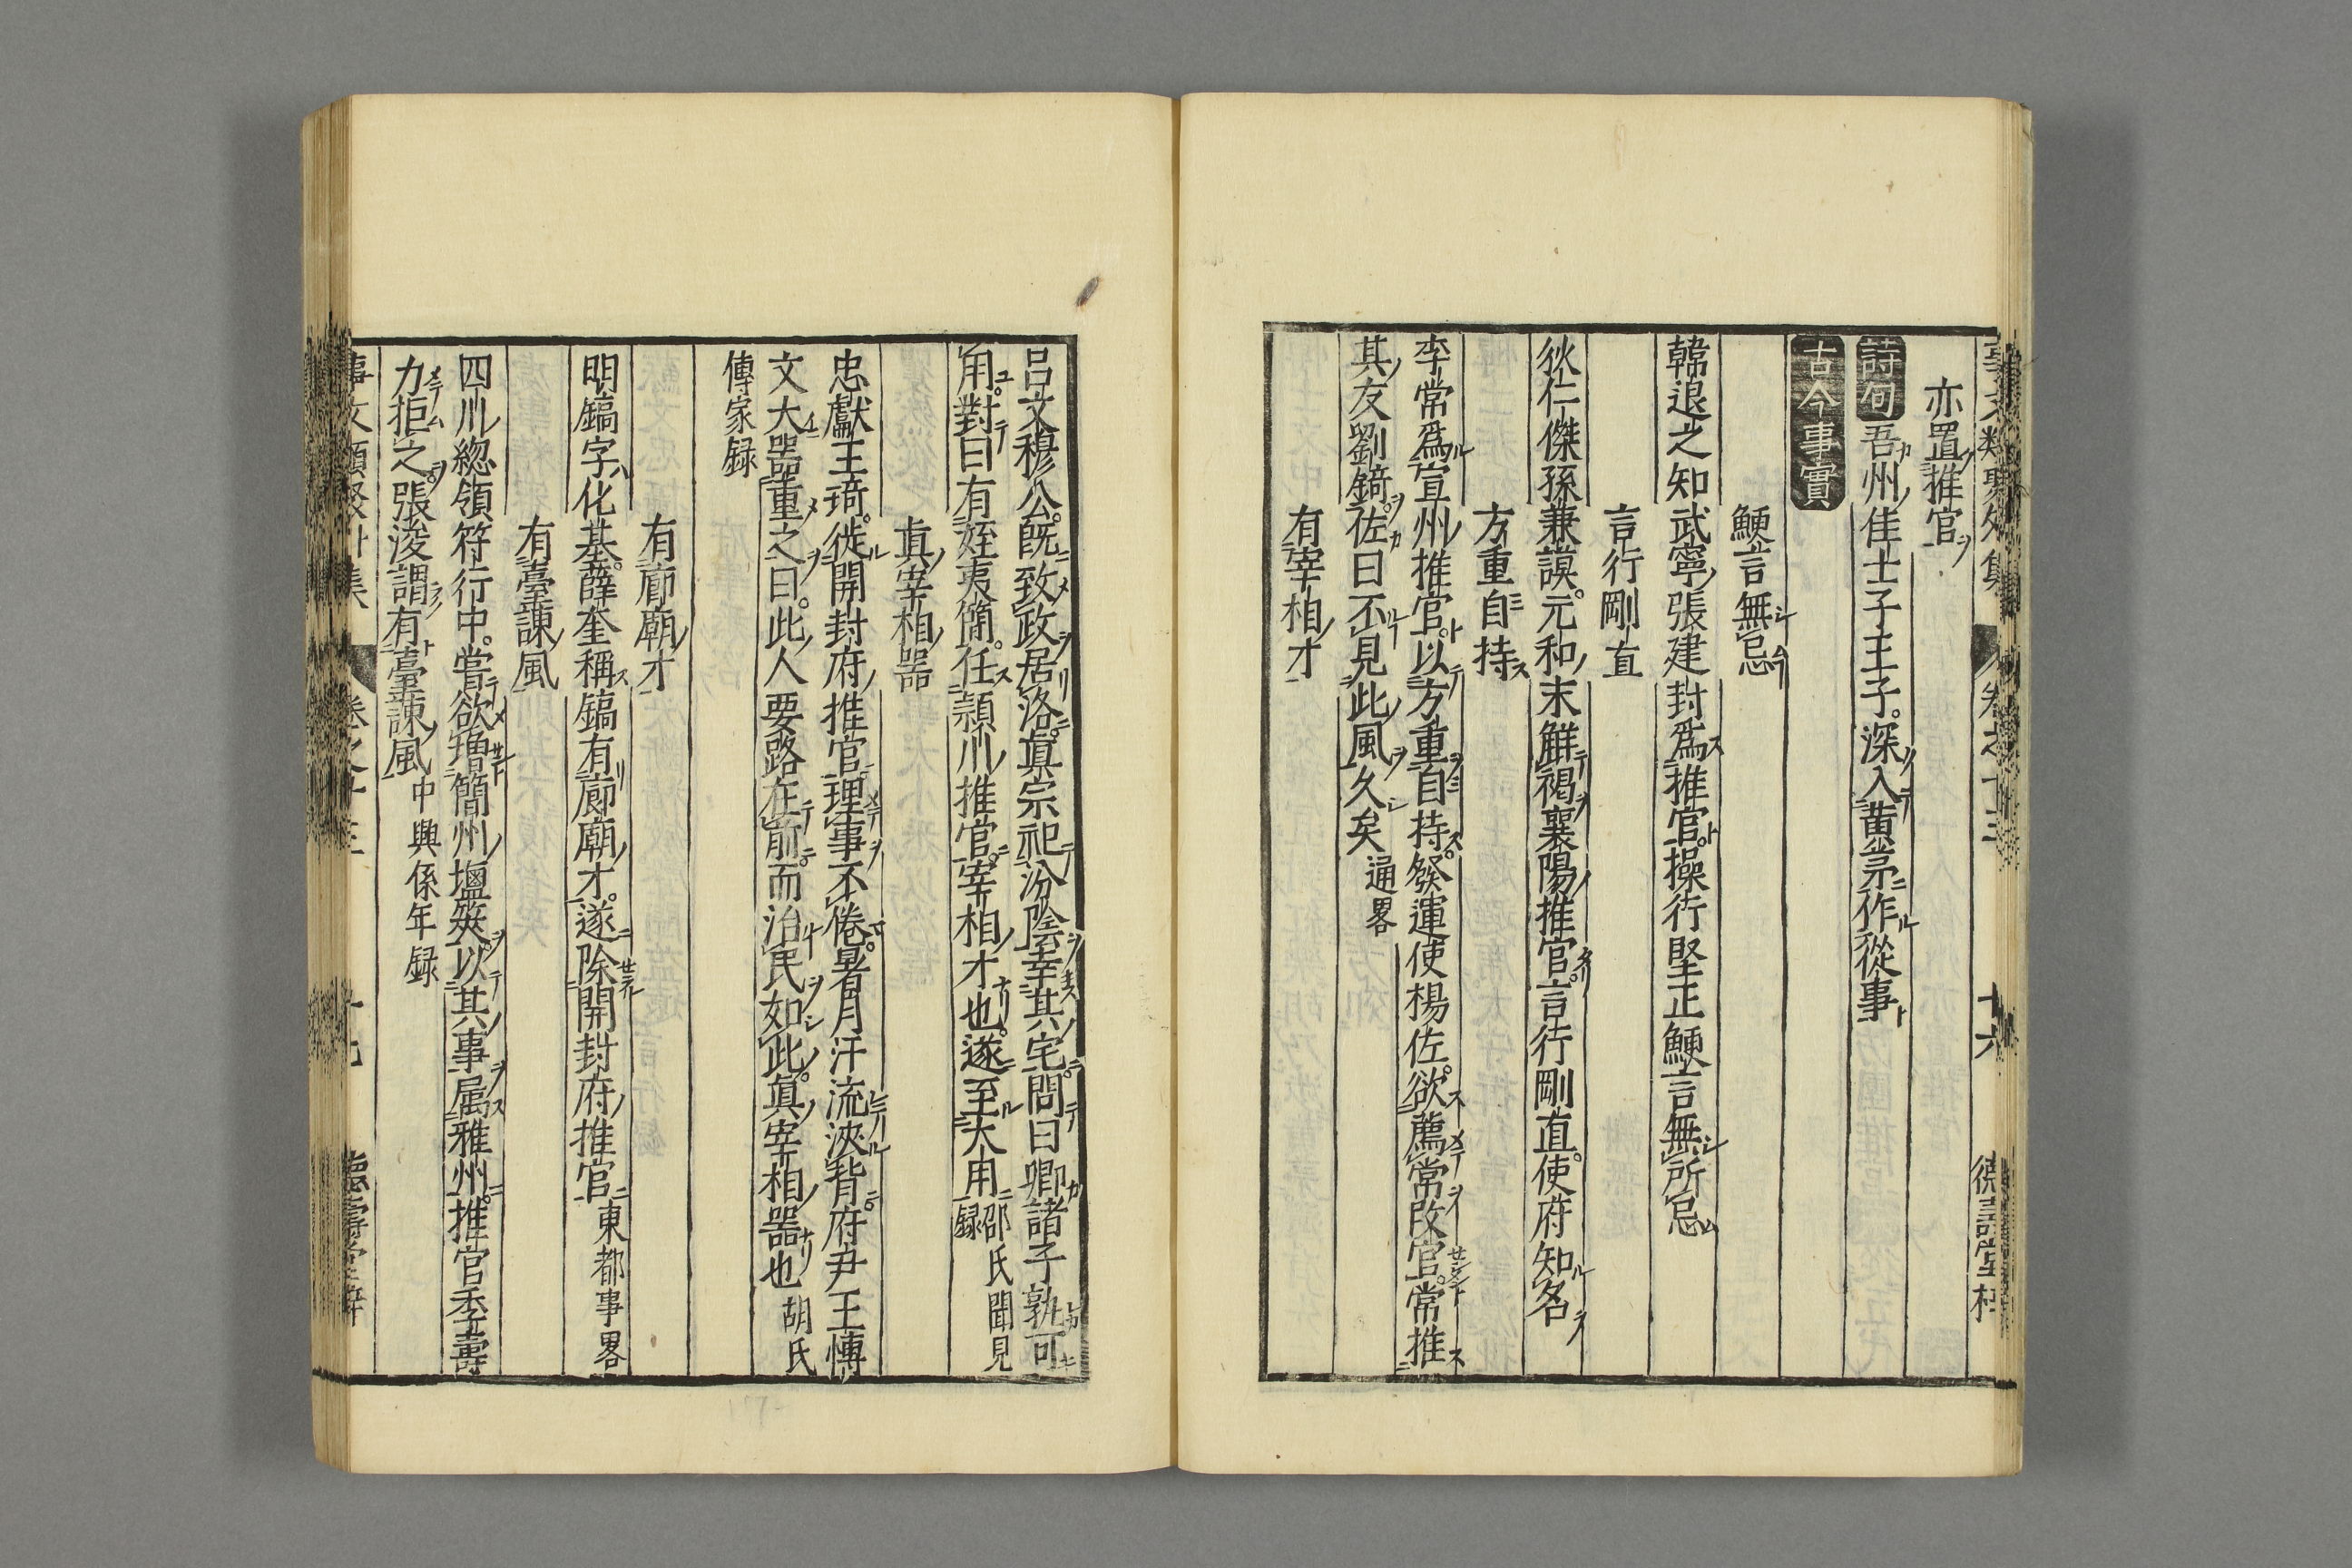 亦置推官
詩句 吾州佳士子王子深入黄茅作從事
古今事實
鯁言無忌
韓退之知武寧張建封爲推官操行堅正鯁言無所忌
言行剛直
狄仁傑孫兼謨元和末觧褐襄陽推官言行剛直使府知名
方重自持
李常爲宣州推官以方重自持發運使楊佐欲薦常改官常推
其友劉錡佐曰不見此風久矣 通畧
有宰相才
呂文穆公既致政居洛眞宗祀汾陰幸其宅問曰卿諸子孰可
用對曰有姪夷簡任頴川推官宰相才也遂至大用 邵氏聞見録
眞宰相器
忠獻王琦從開封府推官理事不倦暑月汗流浹背府尹王博
文大器重之曰此人要路在前而治民如此眞宰相器也 胡氏
傳家録
有廊廟才
明鎬字化基薛奎稱鎬有廊廟才遂除開封府推官 東都事畧
有臺諫風
四川緫領符行中嘗欲増簡州塩筴以其事属雅州推官李壽
力拒之張浚謂有臺諫風 中興係年録